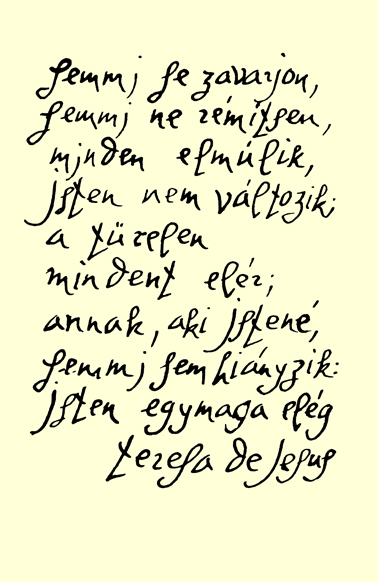 semmj se zavarjon,
semmj ne rémítsen,
mjnden elmúlik,
jsten nem változik;
a türelem
mindent elér;
annak, aki jstené,
semmj sem hiányzik:
jsten egymaga elég
teresa de Jesus